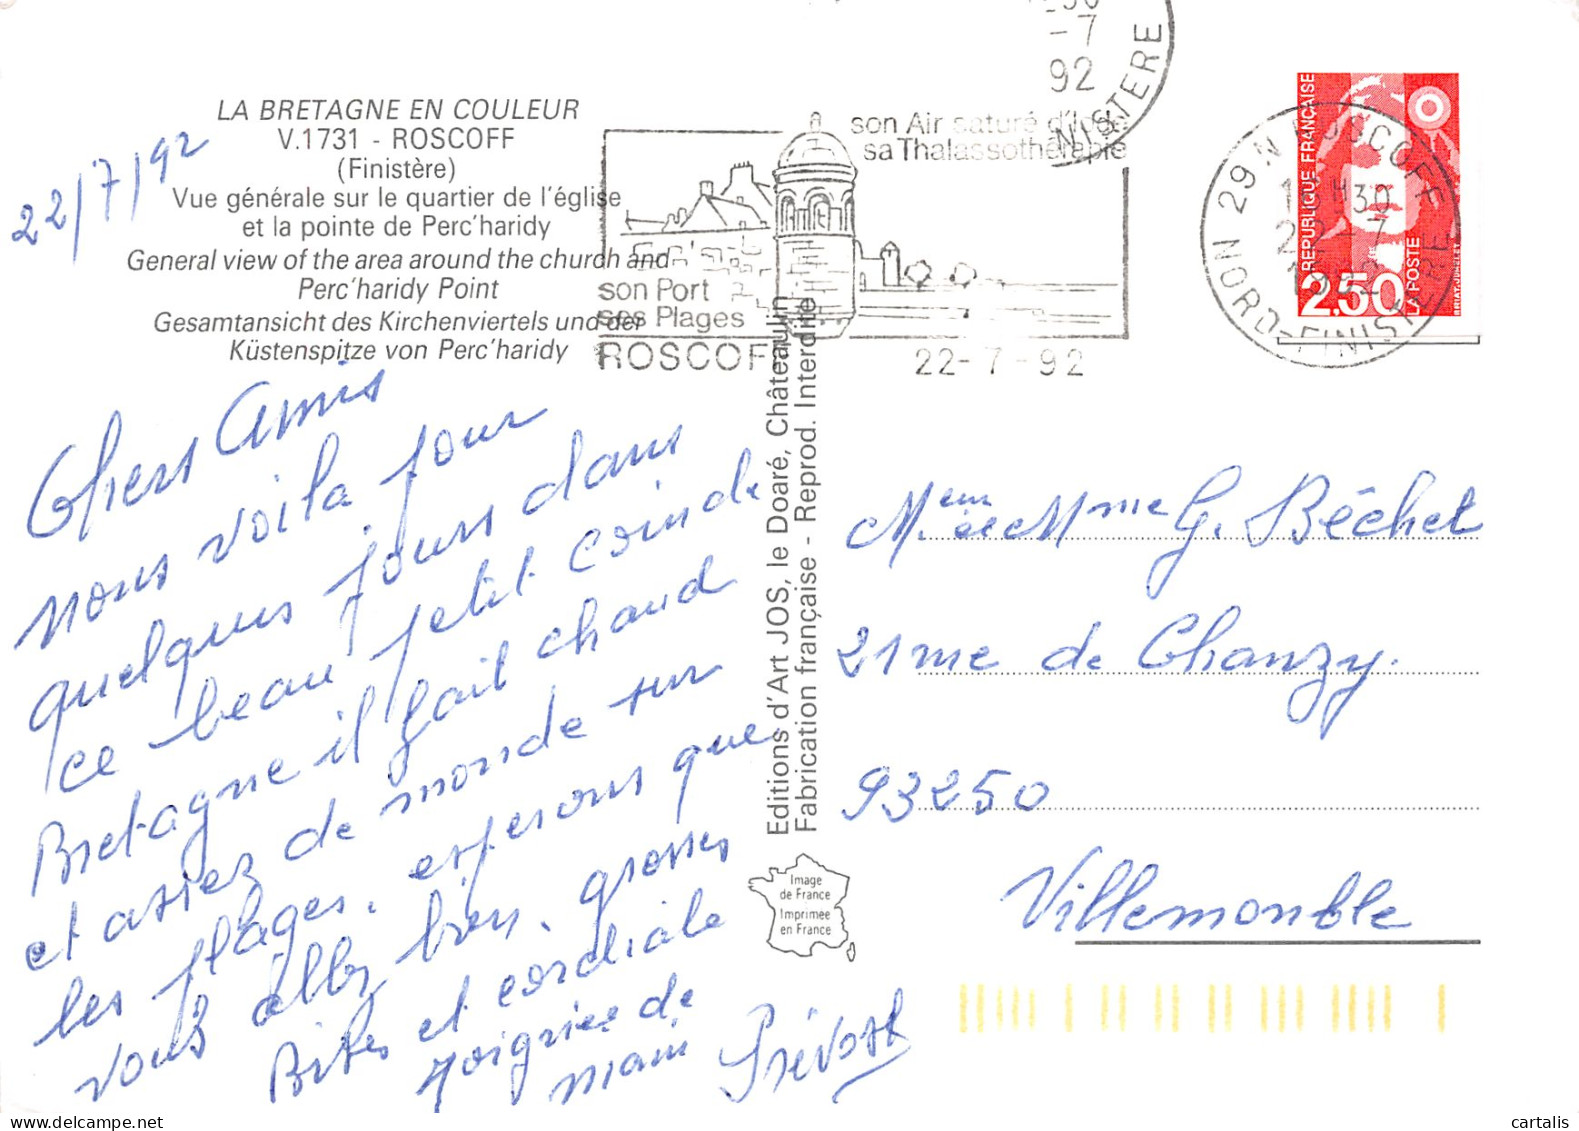 LA BRETAGNE EN COULEUR
V.1731 - ROSCOFF
(Finistère)
Vue générale sur le quartier de l'église
et la pointe de Perc'haridy
General view of the area around the church and
Perc'haridy Point
Gesamtansicht des Kirchenviertels und der
Küstenspitze von Perc'haridy
22/7/92
Chers Amis
nous voila pour
quelques jours dans
ce beau petit coin de
Bretagne il fait chaud
et assez de monde sur
les plages. esperons que
vous allez bien. grosses
Bises et cordiale
poignée de
main Prévost
-7
92
NISTERE
son Air saturé d'Iode
sa Thalassothérapie
son Port
ses Plages
ROSCOFF
22-7-92
Editions d'Art JOS, le Doaré, Châteaulin
Fabrication française - Reprod. Interdite
Image
de France
Imprimée
en France
REPUBLIQUE FRANÇAISE
2,50
LA POSTE
BRIAT-JUMELET
29.N ROSCOFF
22-7
NORD-FINISTERE
M. et Mme G. Béchet
21 rue de Chanzy.
93250
Villemonble
cartalis www.delcampe.net